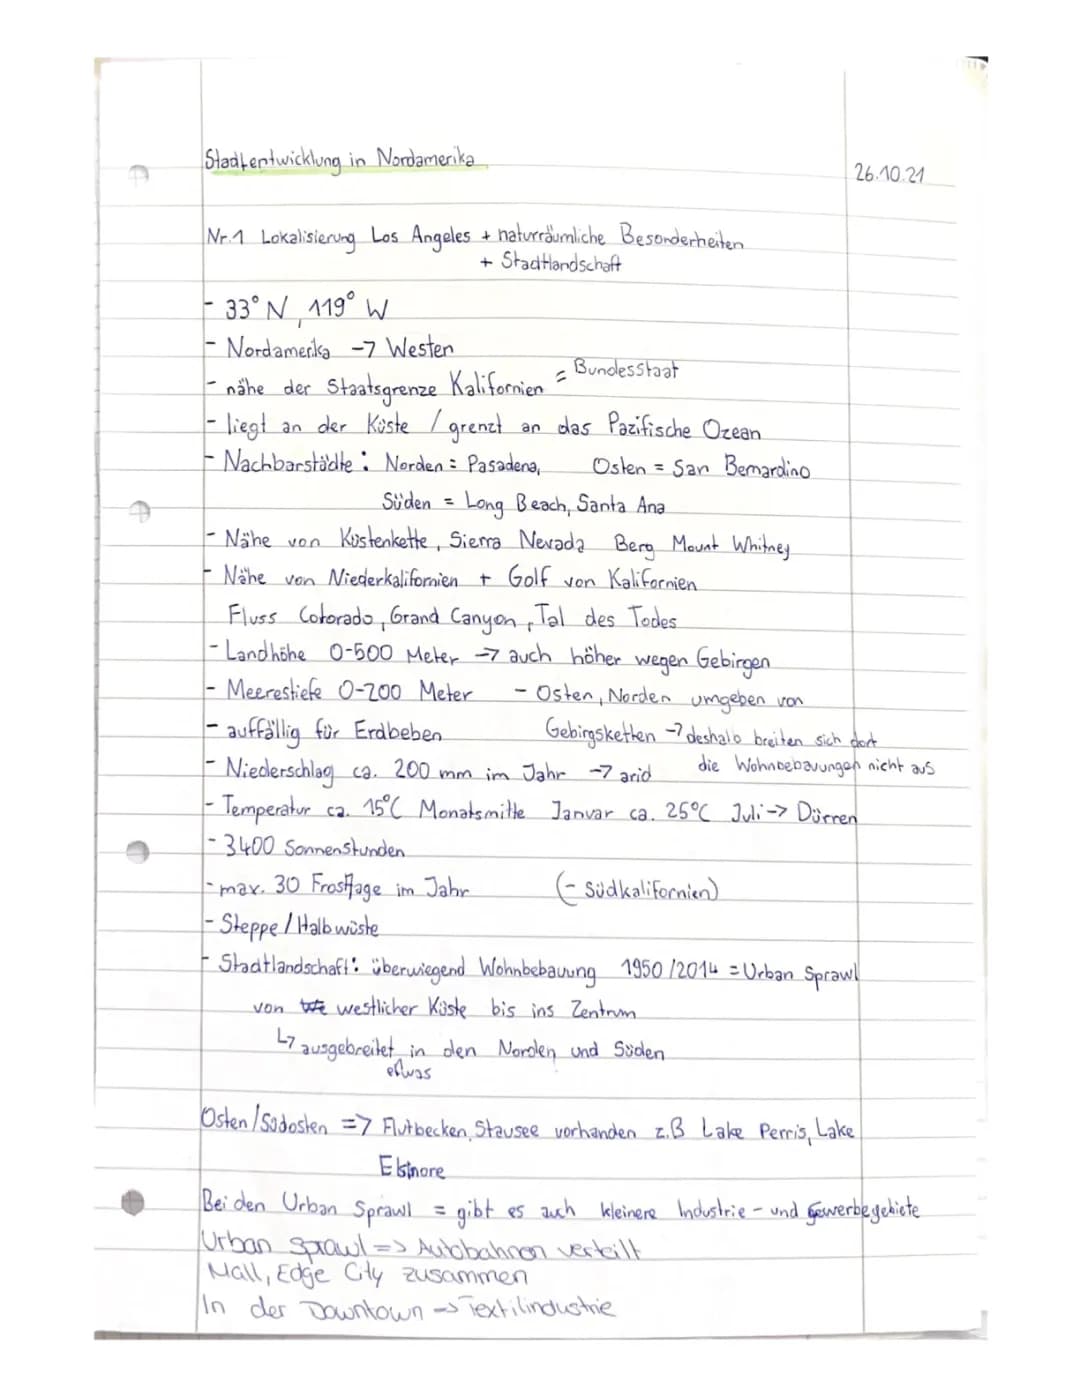 Stadtentwicklung in Nordamerika
26.10.21
Nr.1 Lokalisierung Los Angeles + naturräumliche Besonderheiten
+ Stadtlandschaft
- 33° N, 119° W
- Nordamerika -> Westen
- nähe der Staatsgrenze Kalifornien = Bundesstaat
- liegt an der Küste / grenzt an das Pazifische Ozean
- Nachbarstädte: Norden = Pasadena, Osten = San Bernardino
Süden = Long Beach, Santa Ana
- Nähe von Küstenkette, Sierra Nevada Berg Mount Whitney
- Nähe von Niederkalifornien + Golf von Kalifornien
Fluss Colorado, Grand Canyon, Tal des Todes
- Landhöhe 0-500 Meter -> auch höher wegen Gebirgen
- Meerestiefe 0-200 Meter - Osten, Norden umgeben von
- auffällig für Erdbeben Gebirgsketten -> deshalb breiten sich dort
- Niederschlag ca. 200 mm im Jahr -> arid die Wohnbebauungen nicht aus
- Temperatur ca. 15°C Monatsmitte Januar ca. 25°C Juli -> Dürren
- 3400 Sonnenstunden
- max. 30 Frosttage im Jahr (- Südkalifornien)
- Steppe / Halbwüste
- Stadtlandschaft: überwiegend Wohnbebauung 1950/2014 = Urban Sprawl
von westlicher Küste bis ins Zentrum
↳ ausgebreitet in den Norden und Süden
etwas
Osten/Südosten => Flutbecken, Stausee vorhanden z.B Lake Perris, Lake
Elsinore
Bei den Urban Sprawl = gibt es auch kleinere Industrie- und Gewerbegebiete
Urban Sprawl => Autobahnen verteilt
Mall, Edge City zusammen
In der Downtown -> Textilindustrie